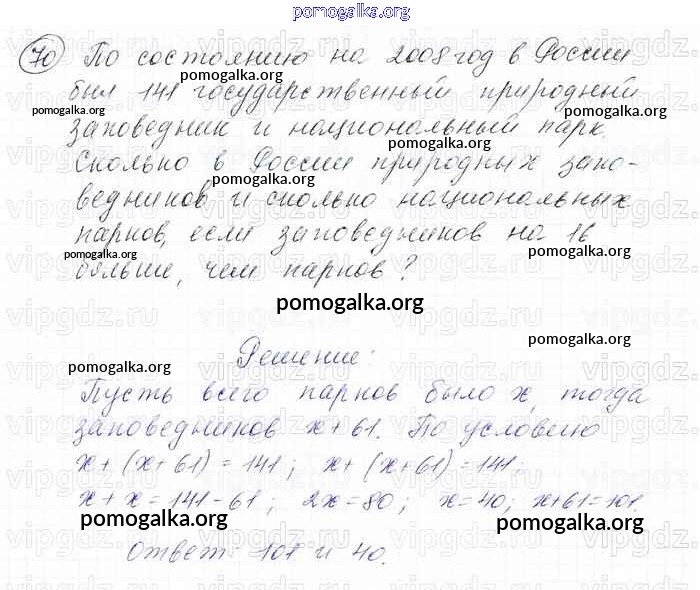 pomogalka.org
70 По состоянию на 2008 год в России
pomogalka.org
был 141 государственный природный
pomogalka.org pomogalka.org
заповедник и национальный парк.
Сколько в России природных запо-
pomogalka.org
ведников и сколько национальных
парков, если заповедников на 16
pomogalka.org pomogalka.org
больше, чем парков?
pomogalka.org
Решение:
pomogalka.org
pomogalka.org
Пусть всего парков было x, тогда
заповедников x+61. По условию
pomogalka.org
x+(x+61)=141; x+(x+61)=141;
x+x=141-61; 2x=80; x=40; x+61=101.
pomogalka.org pomogalka.org
Ответ: 101 и 40.